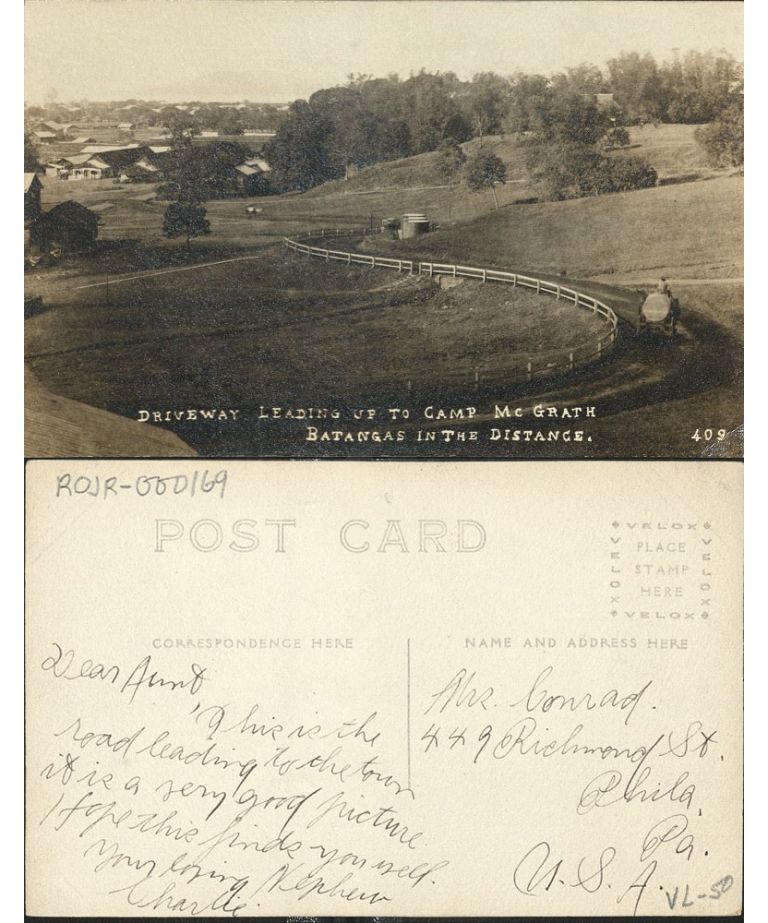 DRIVEWAY LEADING UP TO CAMP MC GRATH
BATANGAS IN THE DISTANCE.
409
ROJR-GGD169
POST CARD
VELOX
VELOX
PLACE
STAMP
HERE
VELOX
VELOX
CORRESPONDENCE HERE
NAME AND ADDRESS HERE
Dear Aunt
This is the
road leading to the town
it is a very good picture
I Hope this finds you well.
Your loving Nephew
Charlie.
Mrs. Conrad.
449 Richmond St.
Phila,
Pa.
U.S.A.
VL-50